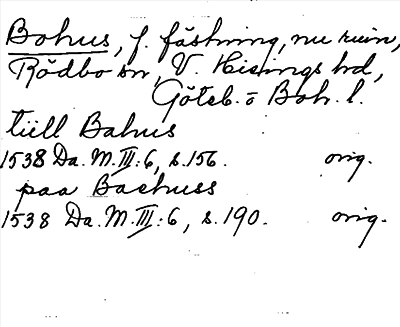 Bohus, f. fästning, nu ruin,
Rödbo sn, V. Hisings hd,
Göteb. o Boh. l.
tiill Bahus
1538 Da. M. III: 6, s. 156. orig.
paa Baehuss
1538 Da. M. III: 6, s. 190. orig.